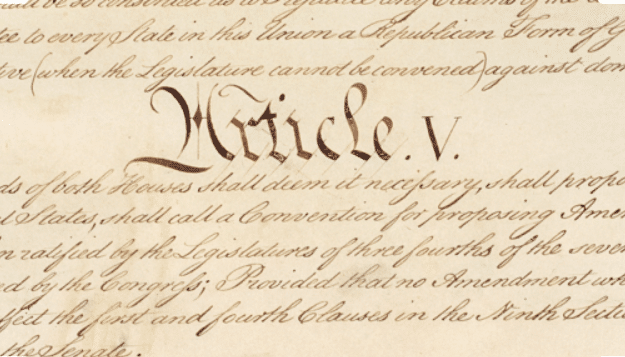 so construed as to Prejudice any Claims of the
tee to every State in this Union a Republican Form of G
tive (when the Legislature cannot be convened) against dom
Article. V.
ds of both Houses shall deem it necessary, shall propo
d States, shall call a Convention for proposing Amen
n ratified by the Legislatures of three fourths of the seve
ed by the Congress; Provided that no Amendment wh
ffect the first and fourth Clauses in the Ninth Secti
the Senate.